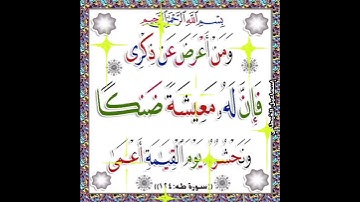 بسم الله الرحمن الرحيم
وَمَنْ أَعْرَضَ عَن ذِكْرِى
فَإِنَّ لَهُۥ مَعِيشَةً ضَنكًا
وَنَحْشُرُهُۥ يَوْمَ ٱلْقِيَٰمَةِ أَعْمَىٰ
((سورة طه:١٢٤))